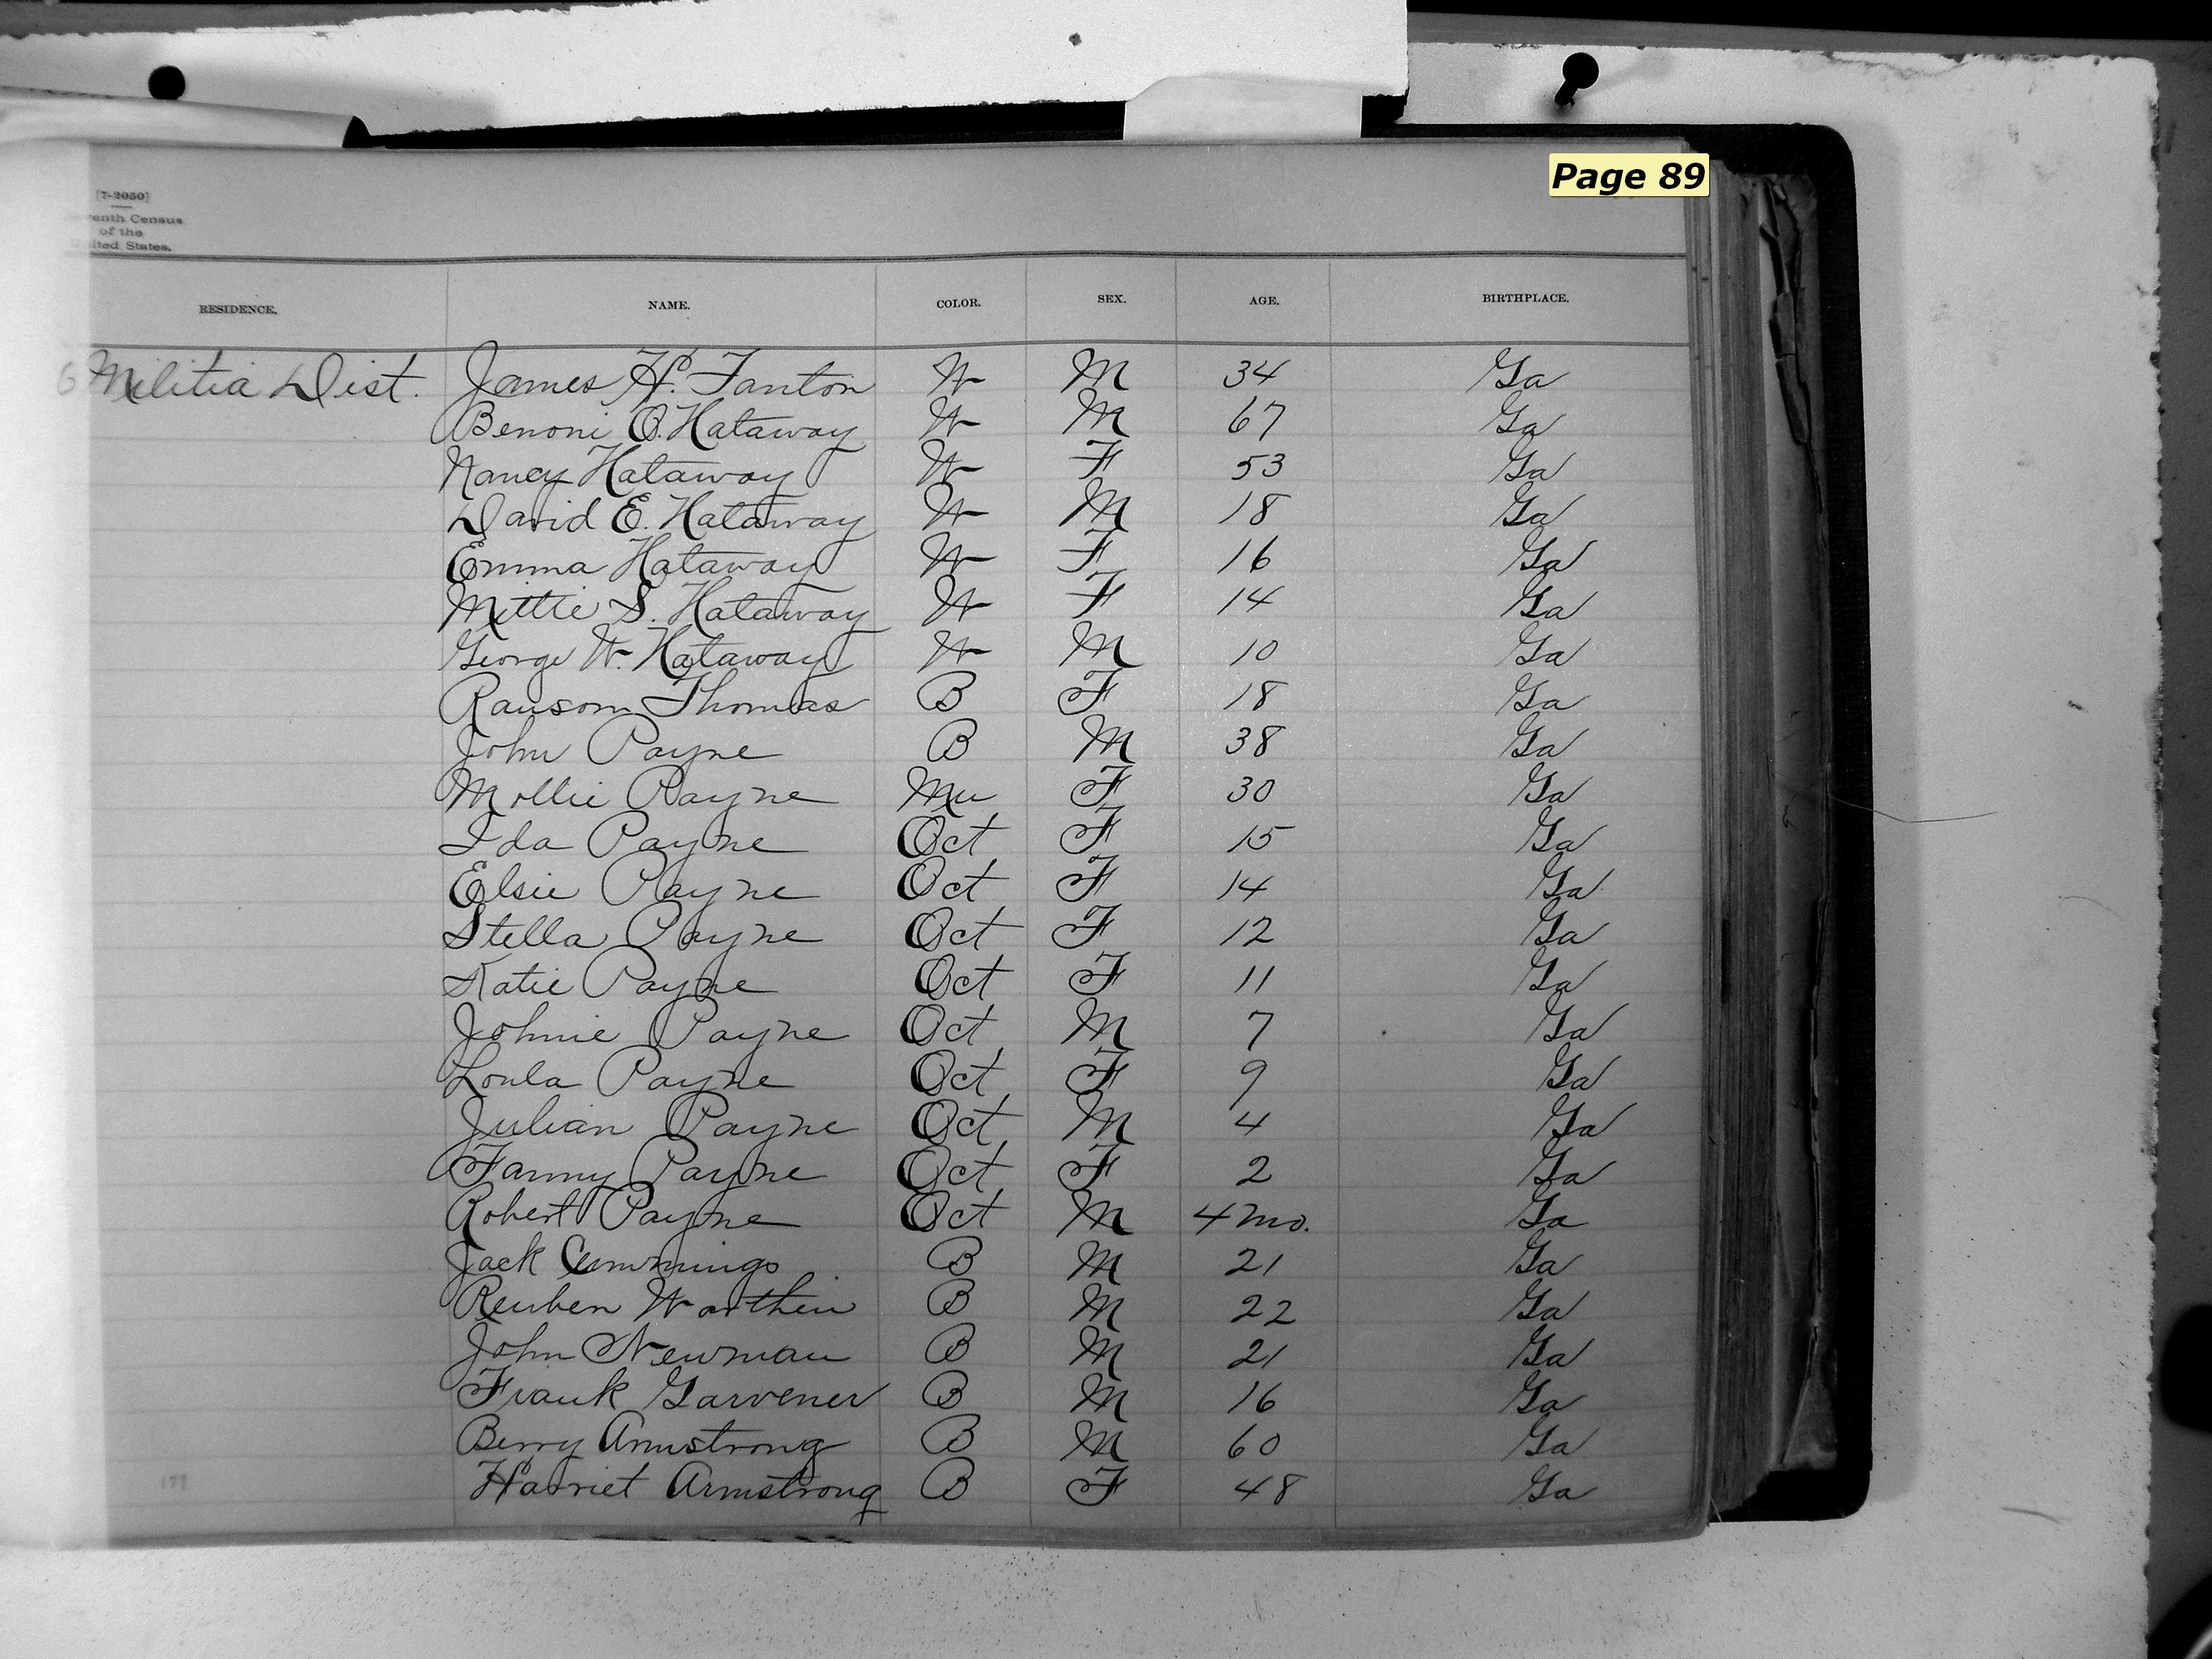 Page 89
[7-2050]
enth Census
of the
ited States.
RESIDENCE. NAME. COLOR. SEX. AGE. BIRTHPLACE.
6 Militia Dist. James H. Fanton W M 34 Ga
Benoni O. Hataway W M 67 Ga
Nancy Hataway W F 53 Ga
David E. Hataway W M 18 Ga
Emma Hataway W F 16 Ga
Mittie S. Hataway W F 14 Ga
George W. Hataway W M 10 Ga
Ransom Thomas B F 18 Ga
John Payne B M 38 Ga
Mollie Payne Mu F 30 Ga
Ida Payne Oct F 15 Ga
Elsie Payne Oct F 14 Ga
Stella Payne Oct F 12 Ga
Katie Payne Oct F 11 Ga
Johnie Payne Oct M 7 Ga
Loula Payne Oct F 9 Ga
Julian Payne Oct M 4 Ga
Fanny Payne Oct F 2 Ga
Robert Payne Oct M 4 mo. Ga
Jack Cummings B M 21 Ga
Reuben Worthin B M 22 Ga
John Newman B M 21 Ga
Frank Garvener B M 16 Ga
Berry Armstrong B M 60 Ga
Harriet Armstrong B F 48 Ga